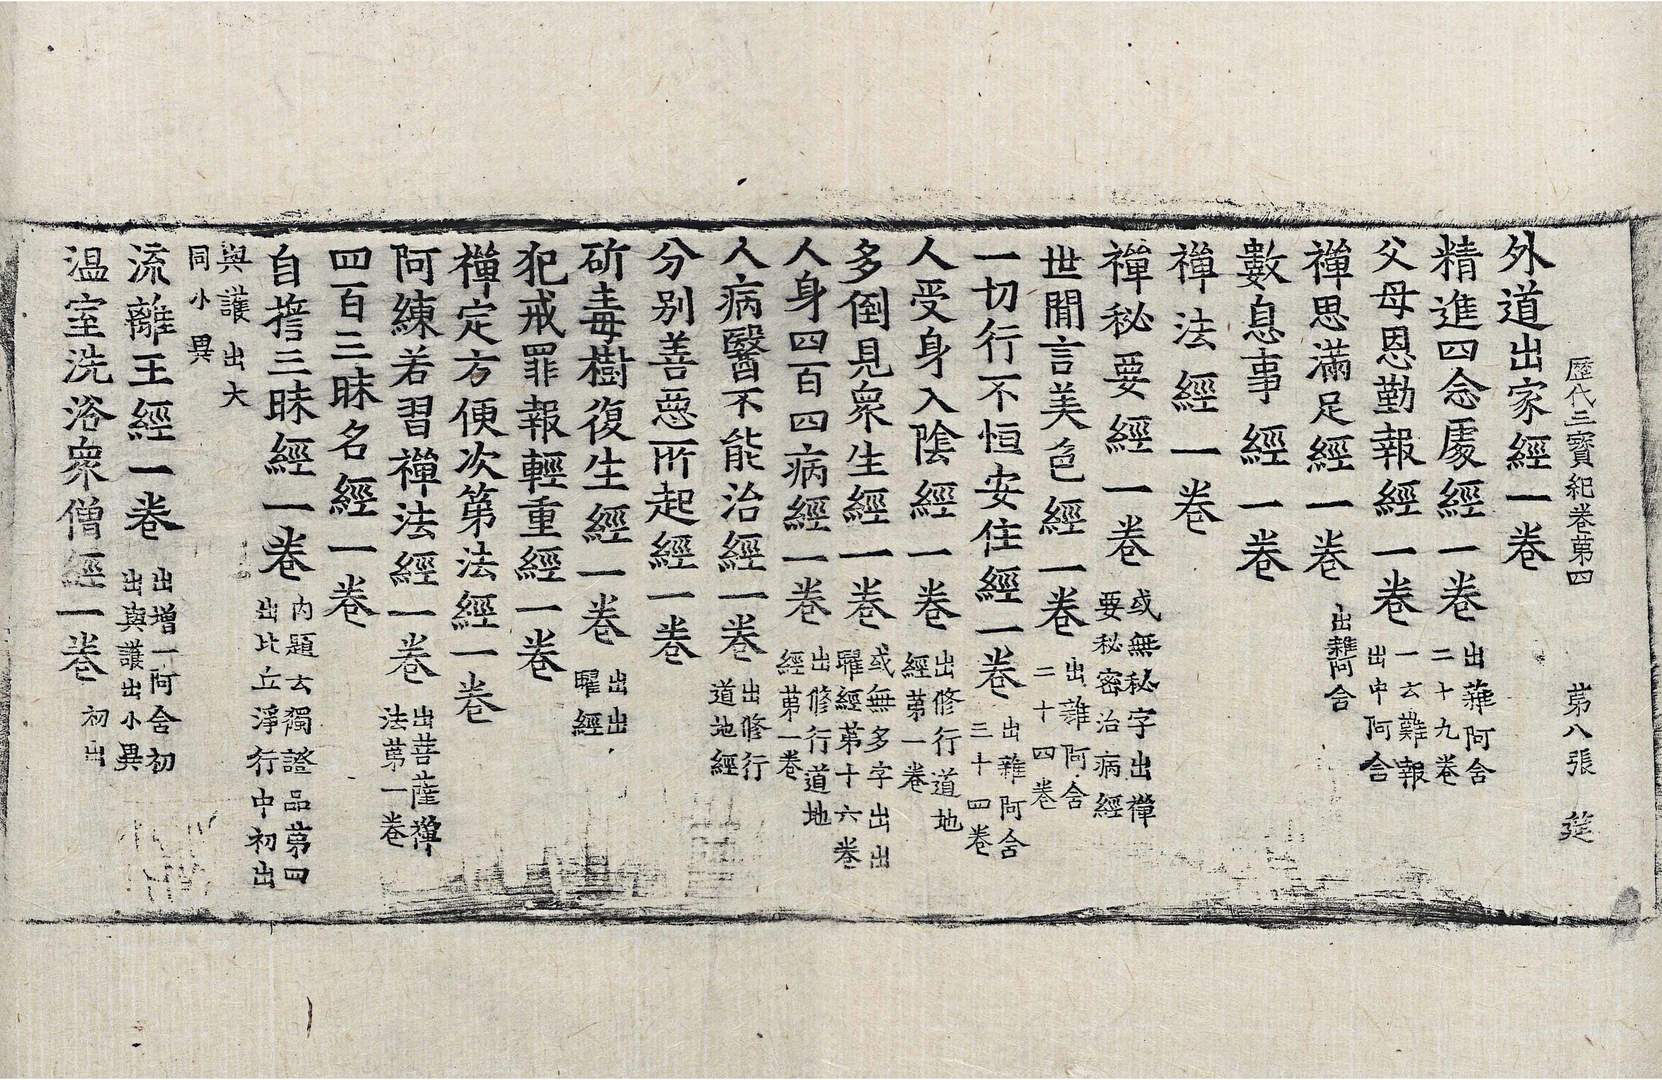 歷代三寶紀卷第四　第八張　莚
外道出家經一卷
精進四念處經一卷 出雜阿含二十九卷
父母恩勤報經一卷 一云難報出中阿含
禪思滿足經一卷 出雜阿含
數息事經一卷
禪法經一卷
禪秘要經一卷 或無秘字出禪要秘密治病經
世間言美色經一卷 出雜阿含二十四卷
一切行不恒安住經一卷 出雜阿含三十四卷
人受身入陰經一卷 出修行道地經第一卷
多倒見衆生經一卷 或無多字出出曜經第十六卷
人身四百四病經一卷 出修行道地經第一卷
人病醫不能治經一卷 出修行道地經
分別善惡所起經一卷
斫毒樹復生經一卷 出出曜經
犯戒罪報輕重經一卷
禪定方便次第法經一卷
阿練若習禪法經一卷 出菩薩禪法第一卷
四百三昧名經一卷
自誓三昧經一卷 內題云獨證品第四出比丘淨行中初出
與護出大同小異
流離王經一卷 出增一阿含初出與護出小異
温室洗浴衆僧經一卷 初出